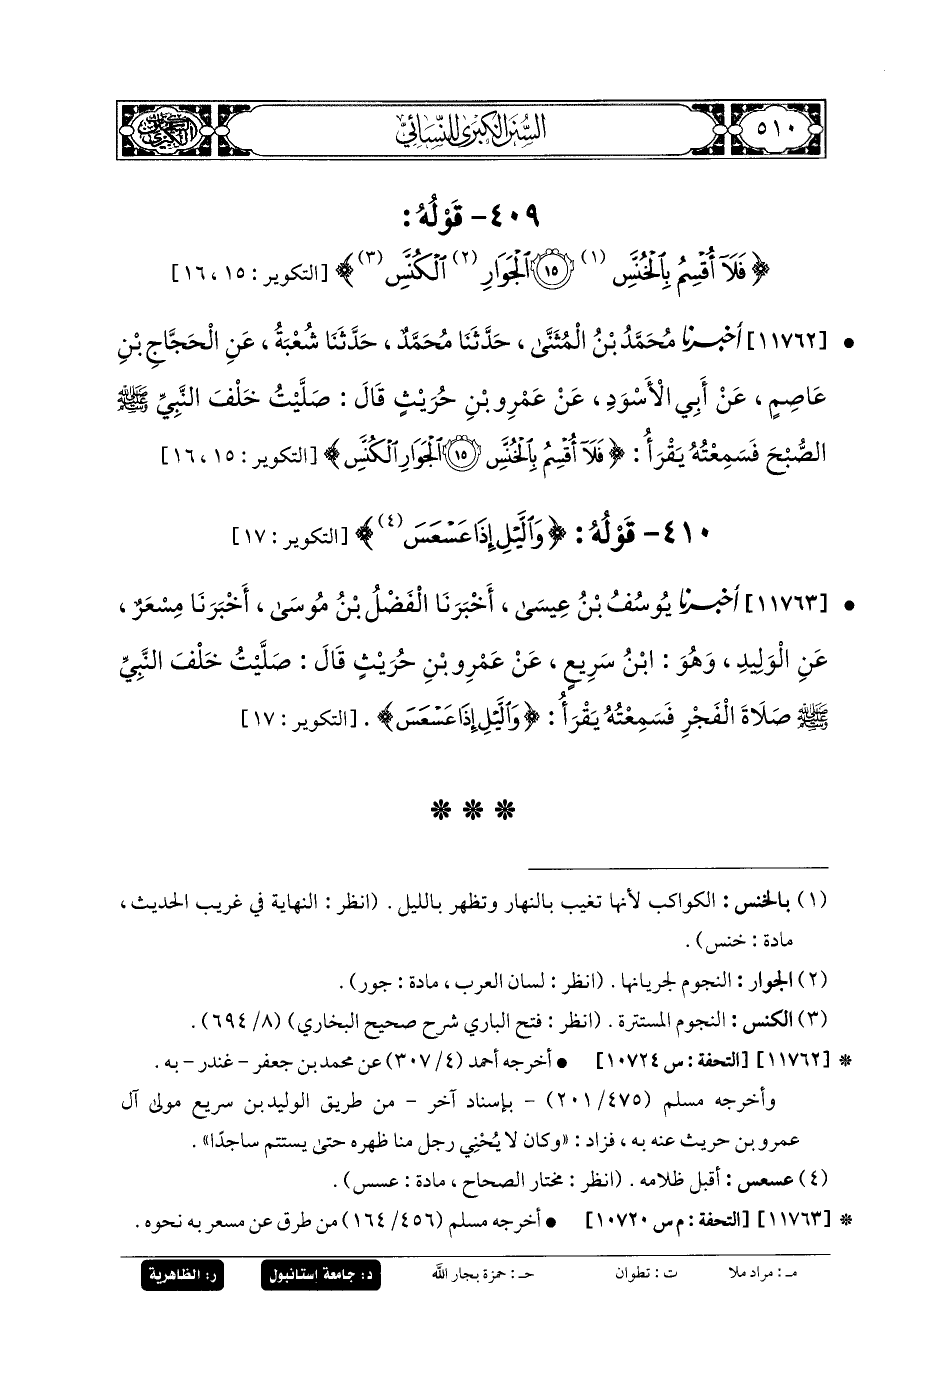 ٥١٠
السنن الكبرى للنسائي
٤٠٩- قَوْلُهُ :
﴿ فَلَآ أُقْسِمُ بِٱلْخُنَّسِ (١) ١٥ ٱلْجَوَارِ (٢) ٱلْكُنَّسِ (٣) ﴾ [التكوير : ١٥ ، ١٦]
• [١١٧٦٢] أخبرنا مُحَمَّدُ بْنُ الْمُثَنَّى ، حَدَّثَنَا مُحَمَّدٌ ، حَدَّثَنَا شُعْبَةُ ، عَنِ الْحَجَّاجِ بْنِ
عَاصِمٍ ، عَنْ أَبِي الْأَسْوَدِ ، عَنْ عَمْرِو بْنِ حُرَيْثٍ قَالَ : صَلَّيْتُ خَلْفَ النَّبِيِّ ﷺ
الصُّبْحَ فَسَمِعْتُهُ يَقْرَأُ : ﴿ فَلَآ أُقْسِمُ بِٱلْخُنَّسِ ١٥ ٱلْجَوَارِ ٱلْكُنَّسِ ﴾ [التكوير : ١٥ ، ١٦]
٤١٠- قَوْلُهُ : ﴿ وَٱلَّيْلِ إِذَا عَسْعَسَ (٤) ﴾ [التكوير : ١٧]
• [١١٧٦٣] أخبرنا يُوسُفُ بْنُ عِيسَى ، أَخْبَرَنَا الْفَضْلُ بْنُ مُوسَى ، أَخْبَرَنَا مِسْعَرٌ ،
عَنِ الْوَلِيدِ ، وَهُوَ : ابْنُ سَرِيعٍ ، عَنْ عَمْرِو بْنِ حُرَيْثٍ قَالَ : صَلَّيْتُ خَلْفَ النَّبِيِّ
ﷺ صَلَاةَ الْفَجْرِ فَسَمِعْتُهُ يَقْرَأُ : ﴿ وَٱلَّيْلِ إِذَا عَسْعَسَ ﴾ . [التكوير : ١٧]
* * *
(١) بالخنس : الكواكب لأنها تغيب بالنهار وتظهر بالليل . (انظر : النهاية في غريب الحديث ،
مادة : خنس) .
(٢) الجوار : النجوم لجريانها . (انظر : لسان العرب ، مادة : جور) .
(٣) الكنس : النجوم المستترة . (انظر : فتح الباري شرح صحيح البخاري) (٨/ ٦٩٤) .
* [١١٧٦٢] [التحفة : س ١٠٧٢٤] • أخرجه أحمد (٤/ ٣٠٧) عن محمد بن جعفر - غندر - به .
وأخرجه مسلم (٤٧٥/ ٢٠١) - بإسناد آخر - من طريق الوليد بن سريع مولى آل
عمرو بن حريث عنه به ، فزاد : «وكان لا يُحْنِي رجل منا ظهره حتى يستتم ساجدًا» .
(٤) عسعس : أقبل ظلامه . (انظر : مختار الصحاح ، مادة : عسس) .
* [١١٧٦٣] [التحفة : م س ١٠٧٢٠] • أخرجه مسلم (٤٥٦/ ١٦٤) من طرق عن مسعر به نحوه .
مـ : مراد ملا ت : تطوان حـ : حمزة بجار الله د : جامعة إستانبول ر : الظاهرية